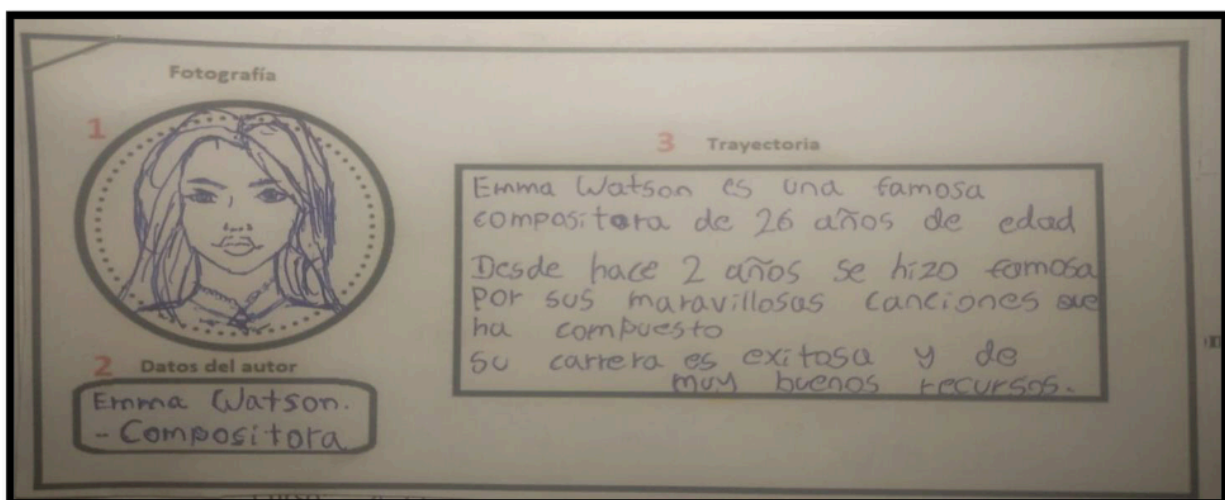 Fotografía
1
2 Datos del autor
Emma Watson.
- Compositora
3 Trayectoria
Emma Watson es una famosa
compositora de 26 años de edad
Desde hace 2 años se hizo famosa
por sus maravillosas canciones que
ha compuesto
su carrera es exitosa y de
muy buenos recursos.